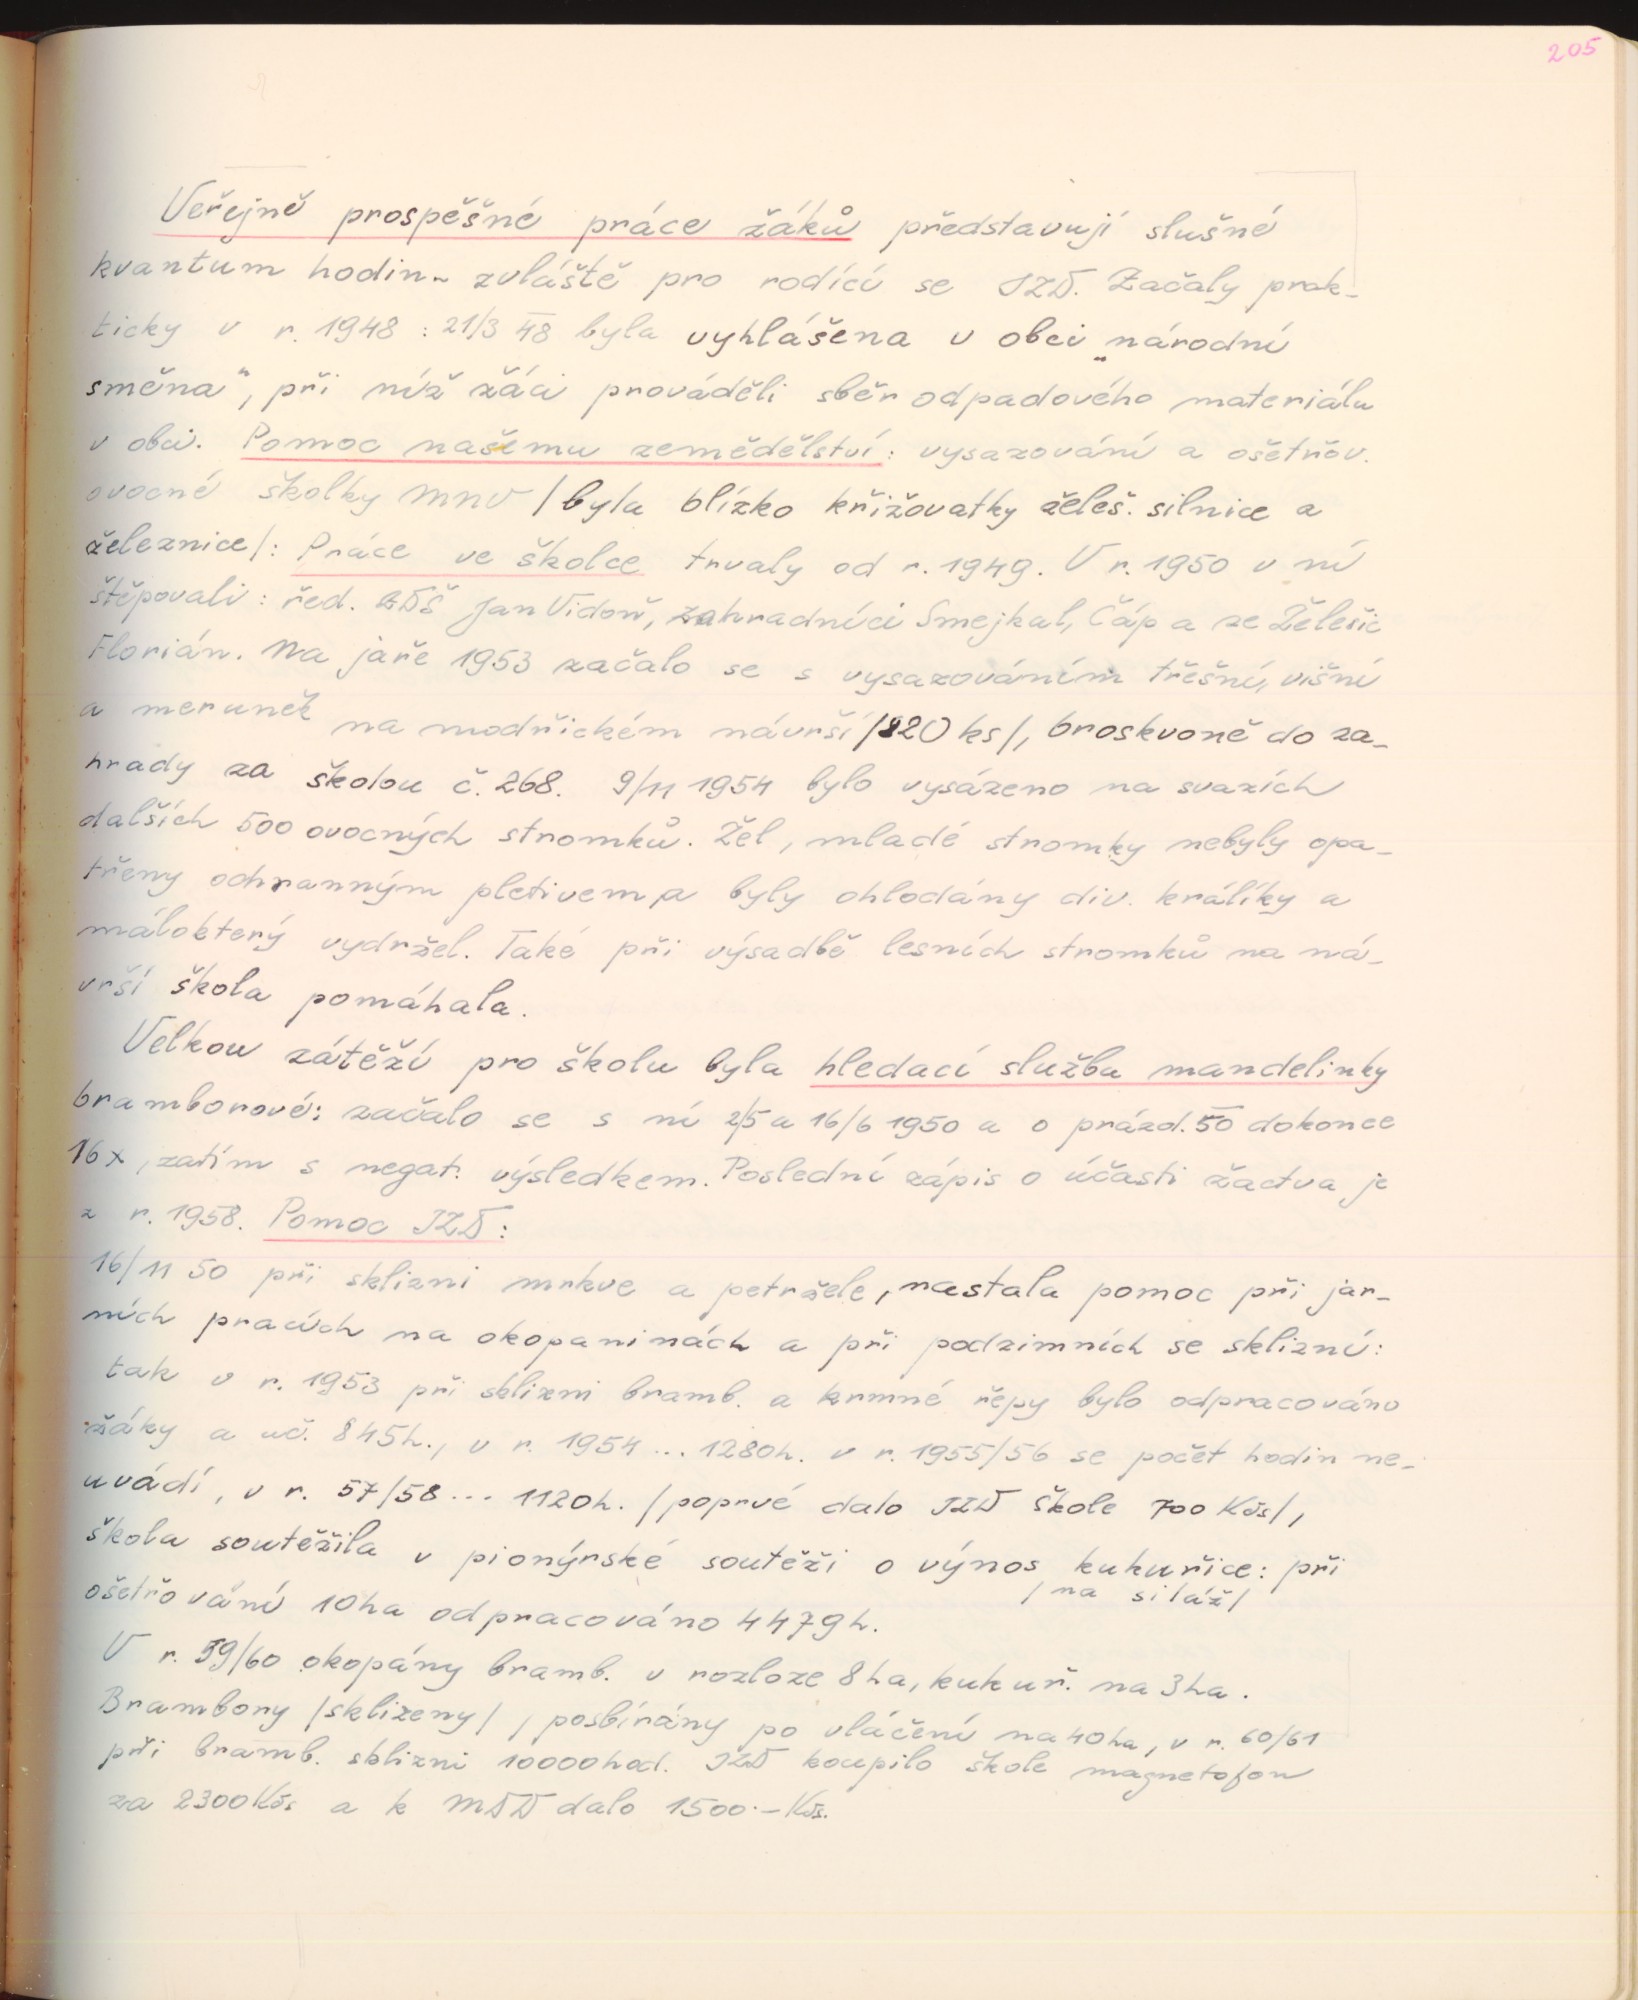 205
Veřejně prospěšné práce žáků představují slušné
kvantum hodin - zvláště pro rodící se JZD. Začaly prak-
ticky v r. 1948 : 21/3 48 byla vyhlášena v obci „národní
směna", při níž žáci prováděli sběr odpadového materiálu
v obci. Pomoc našemu zemědělství: vysazování a ošetřov.
ovocné školky MNV /byla blízko křižovatky želeš. silnice a
železnice/: Práce ve školce trvaly od r. 1949. V r. 1950 v ní
štěpovali: řed. Jan Vidoň, zahradníci Smejkal, Čáp a ze Želešic
Florián. Na jaře 1953 začalo se s vysazováním třešní, višní
a meruněk na modřickém návrší /820 ks/, broskvoně do za-
hrady za školou č. 268. 9/11 1954 bylo vysázeno na svazích
dalších 500 ovocných stromků. Žel, mladé stromky nebyly opa-
třeny ochranným pletivem a byly ohlodány div. králíky a
máloкterý vydržel. Také při výsadbě lesních stromků na ná-
vrší škola pomáhala.
Velkou zátěží pro školu byla hledací služba mandelinky
bramborové: začalo se s ní 2/5 a 16/6 1950 a o prázd. 50 dokonce
16 x, zatím s negat. výsledkem. Poslední zápis o účasti žactva je
z r. 1958. Pomoc JZD:
16/11 50 při sklizni mrkve a petržele, nastala pomoc při jar-
ních pracích na okopaninách a při podzimních se sklizní:
tak v r. 1953 při sklizni bramb. a krmné řepy bylo odpracováno
žáky a uč. 845h., v r. 1954 ... 1280h. v r. 1955/56 se počet hodin ne-
uvádí, v r. 57/58 ... 1120h. /poprvé dalo JZD škole 700 Kčs/,
škola soutěžila v pionýrské soutěži o výnos kukuřice: při
/na siláž/
ošetřování 10ha odpracováno 4479h.
V r. 59/60 okopány bramb. v rozloze 8ha, kukuř. na 3ha.
Brambory /sklizeny/, posbírány po vláčení na 40ha, v r. 60/61
při bramb. sklizni 10000hod. JZD koupilo škole magnetofon
za 2300Kčs a k MDD dalo 1500.-Kčs.